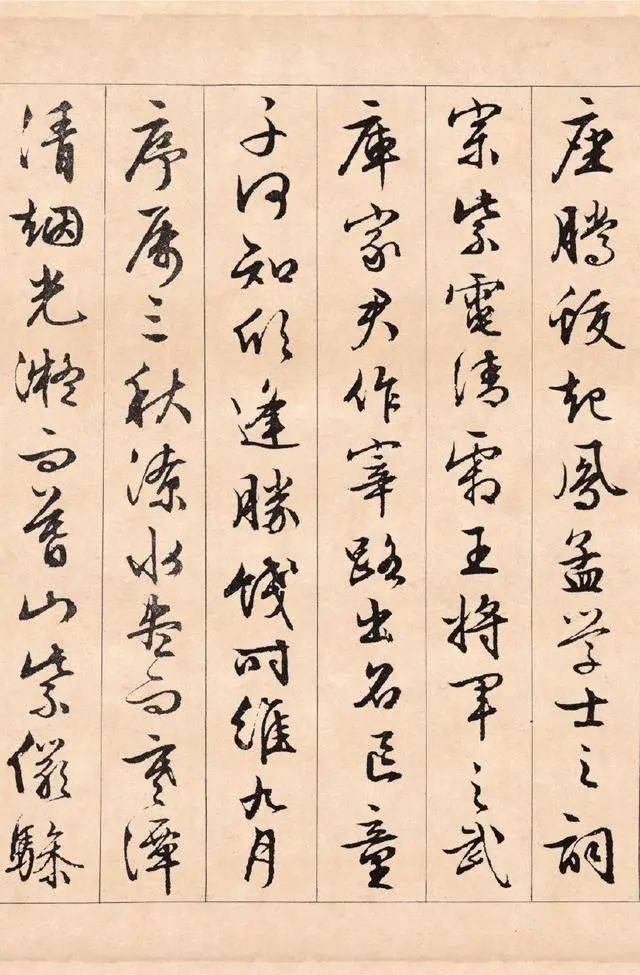 座騰蛟起鳳孟学士之詞
宗紫電清霜王將軍之武
庫家君作宰路出名區童
子何知欣逢勝餞時維九月
序属三秋潦水盡而寒潭
清烟光凝而暮山紫儼驂